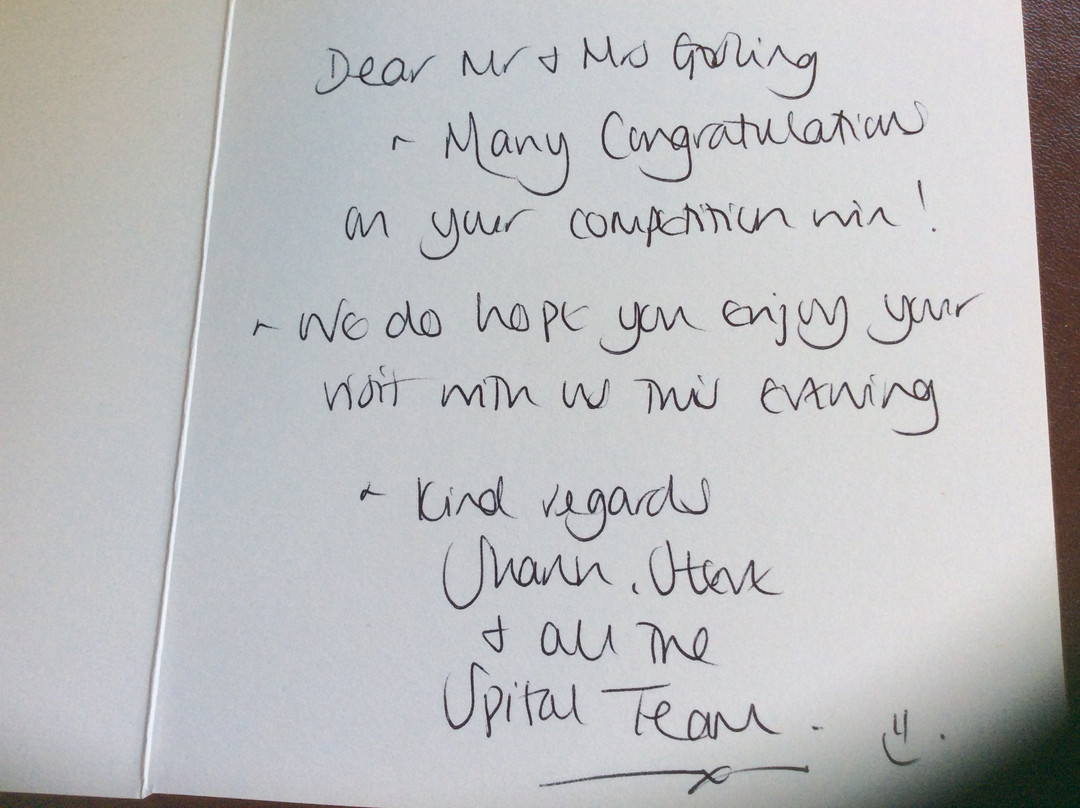 Dear Mr & Mrs Gosling
~ Many Congratulations
on your competition win!
~ We do hope you enjoy your
visit with us this evening
~ Kind regards
Sharon, Steve
& all the
Spital Team.